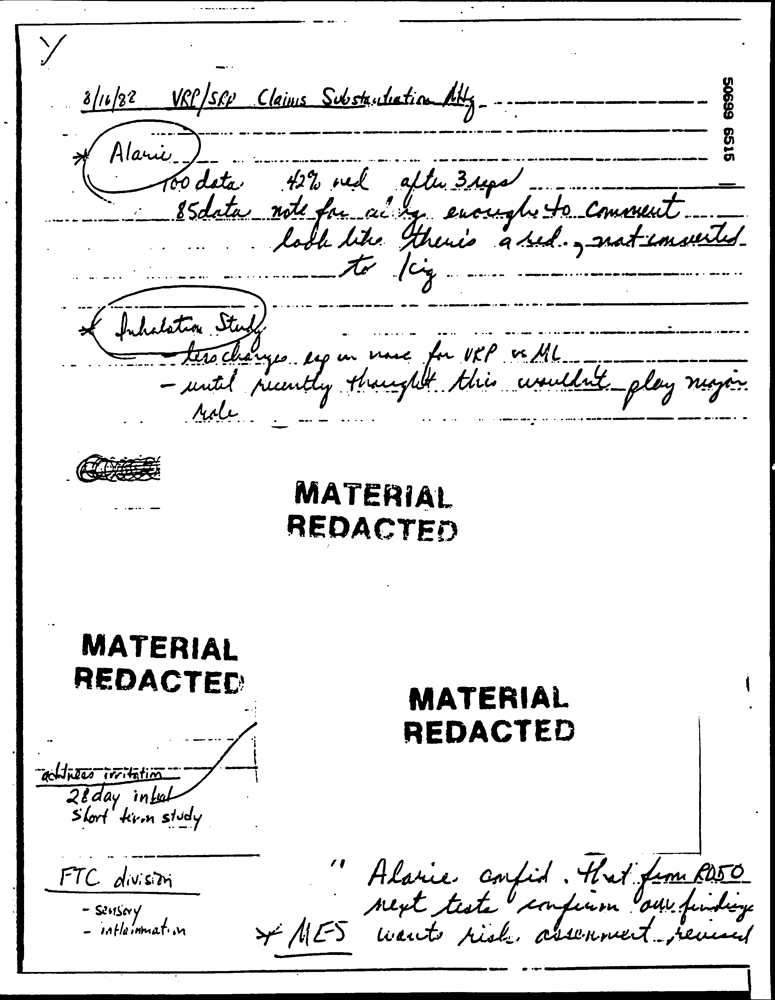 8/16/82 VRP/SRP Claims Substantiation Mtg
50699 6515
* Alarie
100 data 42% red after 3 reps
85 data note far along enough to comment
look like there's a red., not converted
to /cig
* Inhalation Study
- less changes ep in nose for VRP vs ML
- until recently thought this wouldn't play major
role
MATERIAL
REDACTED
MATERIAL
REDACTED
MATERIAL
REDACTED
address irritation
28 day inhal
short term study
FTC division
- sensory
- inflammation
" Alarie confid. that from RD50
next tests confirm our findings
* MES wants risk assessment revised